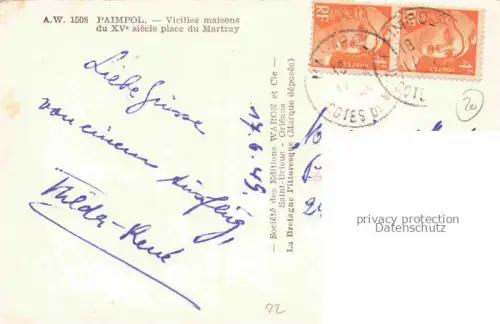 A.W. 1508 PAIMPOL. — Vieilles maisons
du XVe siècle place du Martray
Liebe Grüsse
von einem Ausflug,
17.6.49.
— Société des Editions WARON et Cie —
Saint-Brieuc - Orléans
La Bretagne Pittoresque (Marque déposée)
RF
POSTES
4F
COTES DU
20
22
privacy protection
Datenschutz